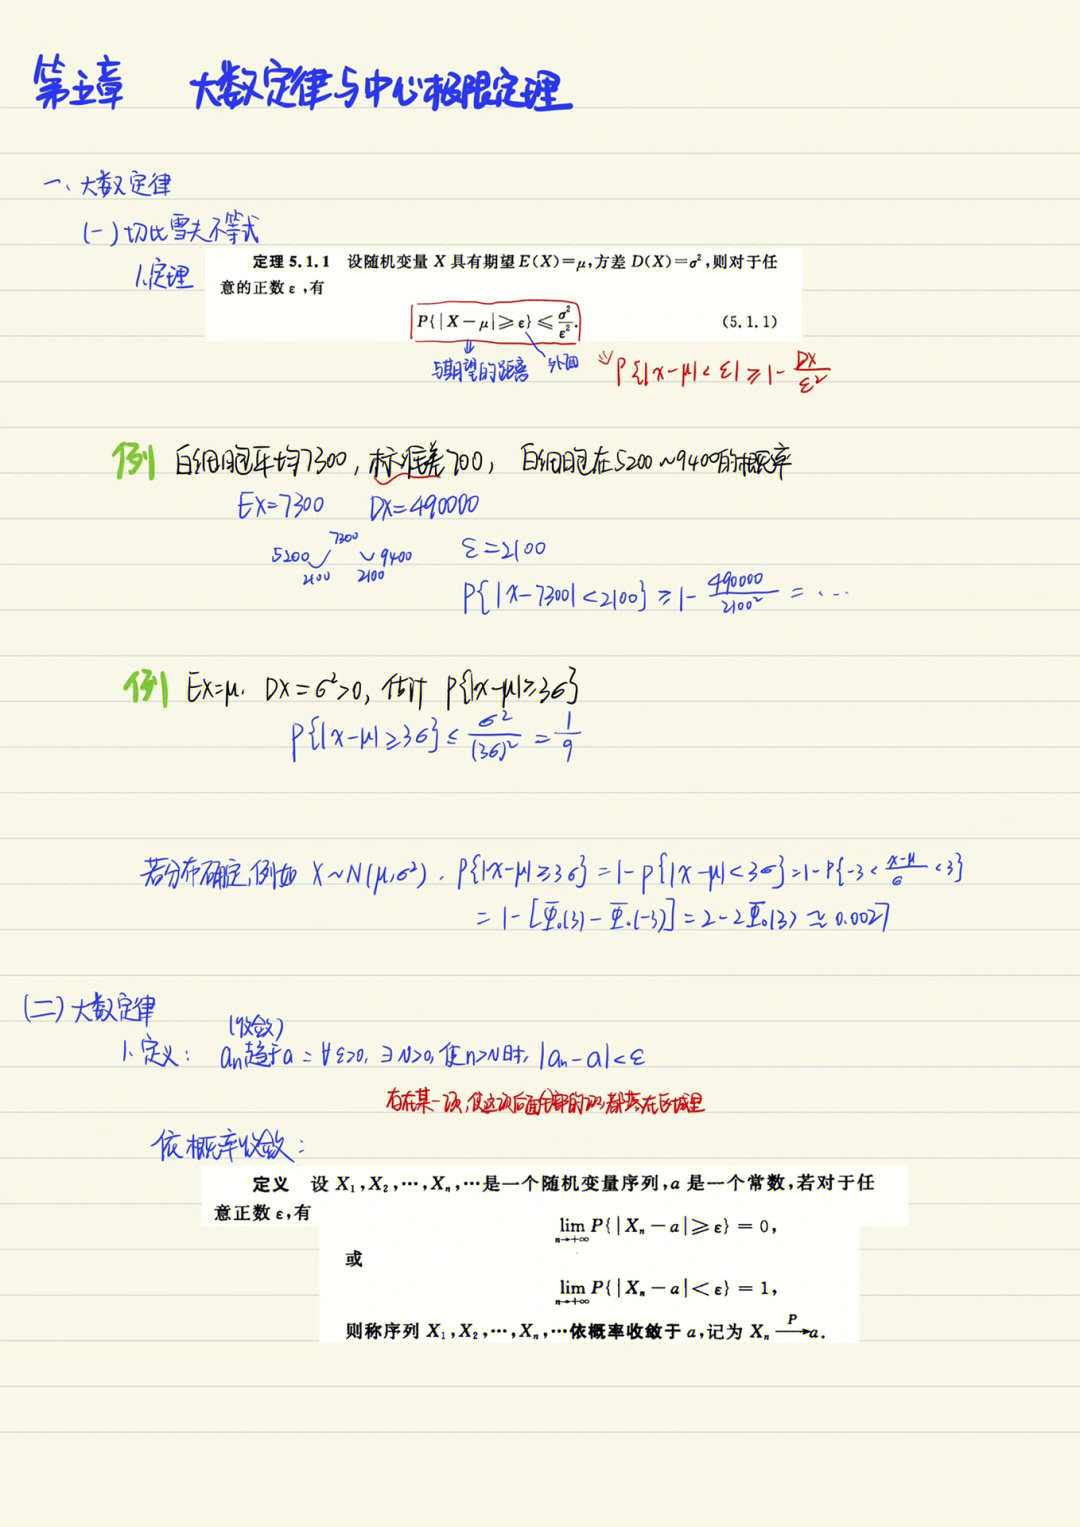 第五章 大数定律与中心极限定理
一、大数定律
(一)切比雪夫不等式
1.定理
定理 5.1.1 设随机变量 X 具有期望 E(X)=μ,方差 D(X)=σ²,则对于任
意的正数 ε ,有
P{|X-μ|≥ε}≤σ²/ε². (5.1.1)
与期望的距离 外面 P{|x-μ|<ε|≥1-DX/ε²
例 白细胞平均7300,标准差700, 白细胞在5200~9400的概率
EX=7300 DX=490000
7300
5200 9400 ε=2100
2100 2100
P{|X-7300|<2100}≥1-490000/2100²=...
例 EX=μ. DX=σ²>0,估计 P{|x-μ|≥3σ}
P{|x-μ|≥3σ}≤σ²/(3σ)²=1/9
若分布确定,例如 X~N(μ,σ²). P{|x-μ|≥3σ}=1-P{|x-μ|<3σ}=1-P{-3<x-μ/σ<3}
=1-[Φ₀(3)-Φ₀(-3)]=2-2Φ₀(3)≈0.0027
(二)大数定律
(收敛)
1.定义: aₙ趋于a=∀ε>0,∃N>0,使n>N时,|aₙ-a|<ε
存在某一项,使这项后面全部的项都落在区域里
依概率收敛:
定义 设 X₁,X₂,⋯,Xₙ,⋯是一个随机变量序列,a 是一个常数,若对于任
意正数 ε,有
lim n→+∞ P{|Xₙ-a|≥ε}=0,
或
lim n→+∞ P{|Xₙ-a|<ε}=1,
则称序列 X₁,X₂,⋯,Xₙ,⋯依概率收敛于 a,记为 Xₙ —P→ a.